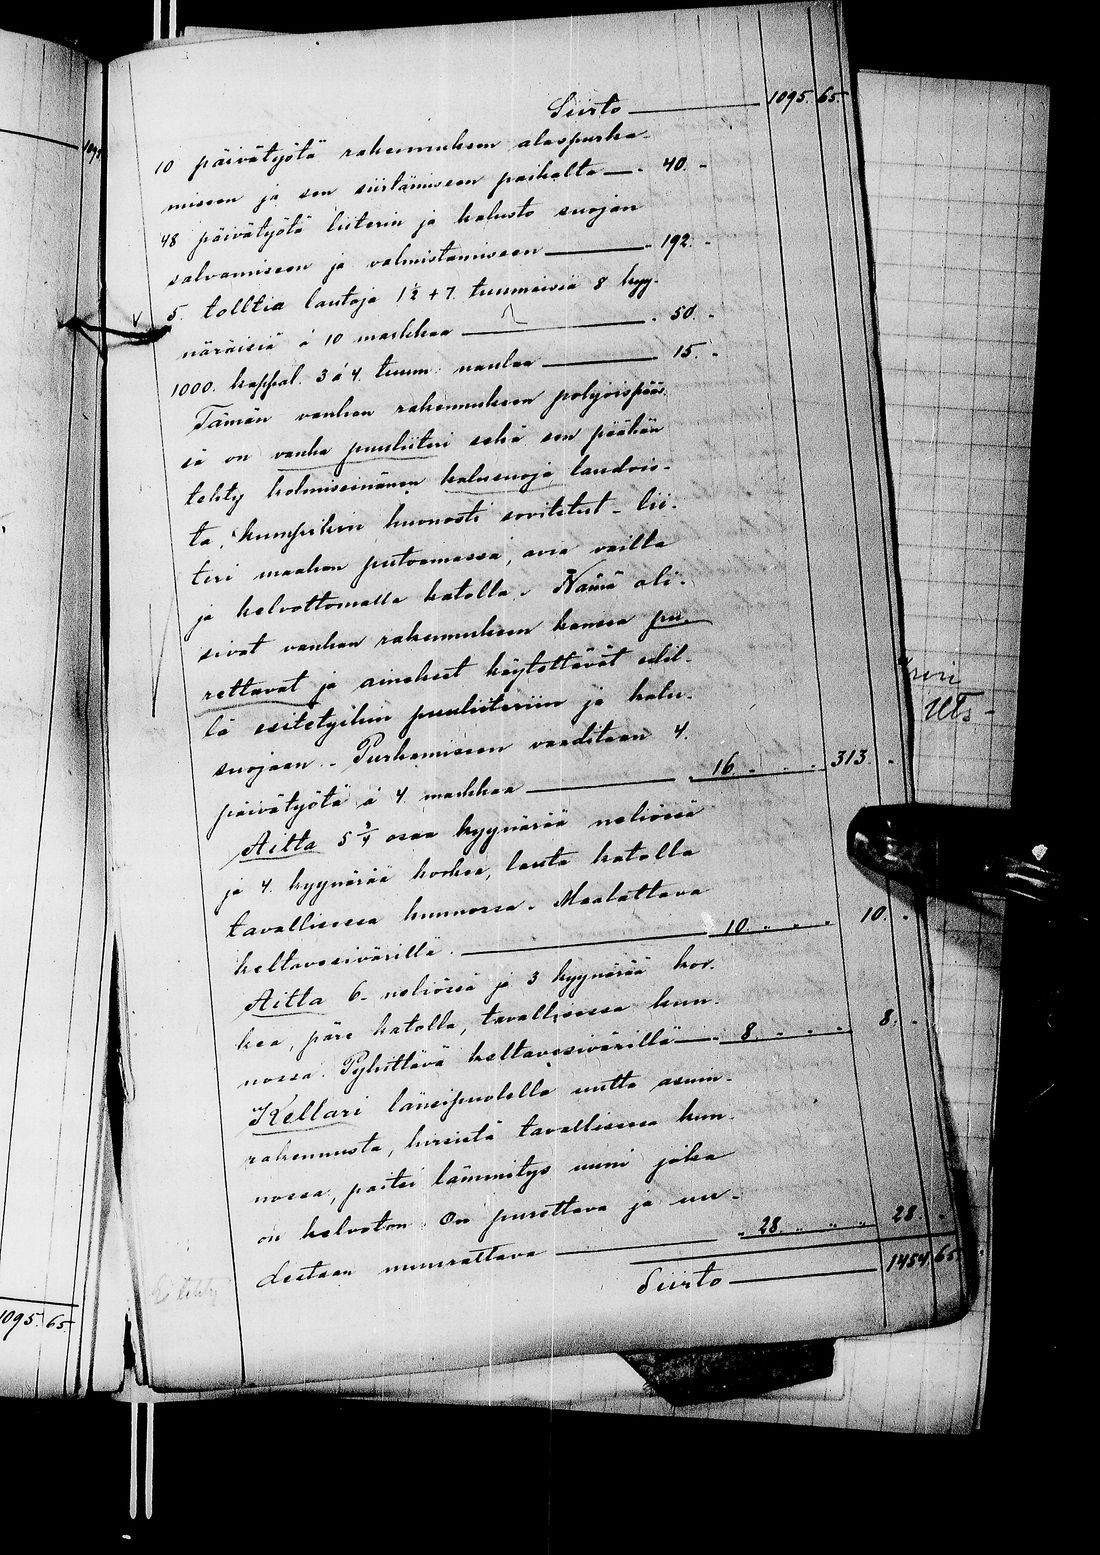 Siirto — 1095. 65.
10 päivätyötä rakennuksen alaspurka-
miseen ja sen siirtämiseen paikalta — 40. -
48 päivätyötä liiterin ja kalusto suojan
salvamiseen ja valmistamiseen — 192. -
5. tolttia lautoja 1½ + 7. tuumaisia 8 kyy-
näräisiä á 10 markkaa — 50. -
1000. kappal. 3 á 4. tuum. naulaa — 15. -
Tämän vanhan rakennuksen pohjoispääs-
sä on vanha puuliiteri sekä sen päähän
tehty kolmiseinänen kalusuoja laudois-
ta, kumpikin huonosti sovitetut - lii-
teri maahan putoamassa, ovia vailla
ja kelvottomalla katolla. Nämä oli-
sivat vanhan rakennuksen kanssa pu-
rettavat ja ainekset käytettävät edel-
lä esitetyihin puuliiteriin ja kalu-
suojaan. - Purkamiseen vaaditaan 4.
päivätyötä á 4. markkaa — 16 " " " 313. -
Aitta 5 ¾ osaa kyynärää neliössä
ja 4. kyynärää korkea, lauta katolla
tavallisessa kunnossa. Maalattava
keltavesivärillä. — 10. " " " 10. -
Aitta 6. neliössä ja 3 kyynärää kor-
kea, päre katolla, tavallisessa kun-
nossa. Pyhittävä keltavesivärillä — 8. " " " 8. -
Kellari länsipuolella uutta asuin-
rakennusta, hirsistä tavallisessa kun-
nossa, paitsi lämmitys uuni joka
on kelvoton. On purettava ja uu-
destaan muurattava — 28. " " " 28. -
Siirto — 1454. 65.
Ei tehty
1095. 65.